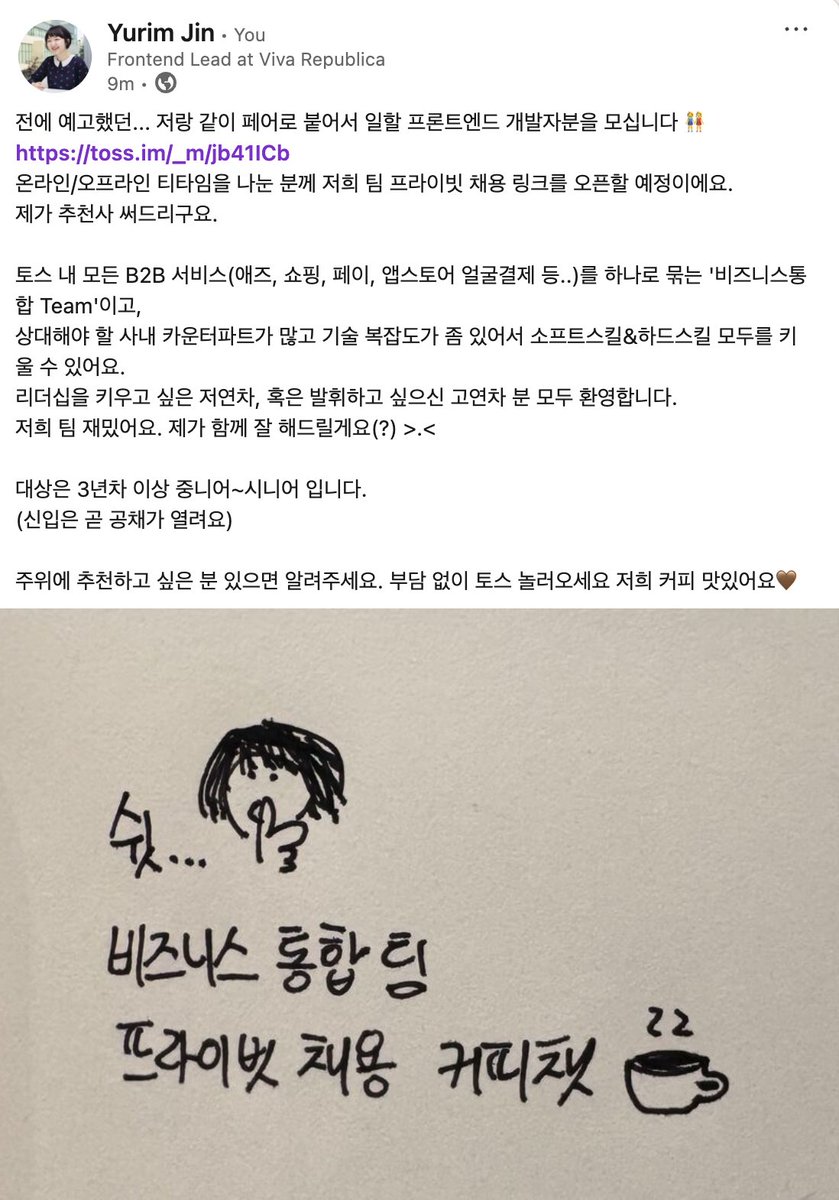 Yurim Jin · You
Frontend Lead at Viva Republica
9m ·
전에 예고했던... 저랑 같이 페어로 붙어서 일할 프론트엔드 개발자분을 모십니다 👭
https://toss.im/_m/jb41ICb
온라인/오프라인 티타임을 나눈 분께 저희 팀 프라이빗 채용 링크를 오픈할 예정이에요.
제가 추천사 써드리구요.
토스 내 모든 B2B 서비스(애즈, 쇼핑, 페이, 앱스토어 얼굴결제 등..)를 하나로 묶는 '비즈니스통
합 Team'이고,
상대해야 할 사내 카운터파트가 많고 기술 복잡도가 좀 있어서 소프트스킬&하드스킬 모두를 키
울 수 있어요.
리더십을 키우고 싶은 저연차, 혹은 발휘하고 싶으신 고연차 분 모두 환영합니다.
저희 팀 재밌어요. 제가 함께 잘 해드릴게요(?) >.<
대상은 3년차 이상 중니어~시니어 입니다.
(신입은 곧 공채가 열려요)
주위에 추천하고 싶은 분 있으면 알려주세요. 부담 없이 토스 놀러오세요 저희 커피 맛있어요🤎
쉿...
비즈니스 통합 팀
프라이빗 채용 커피챗